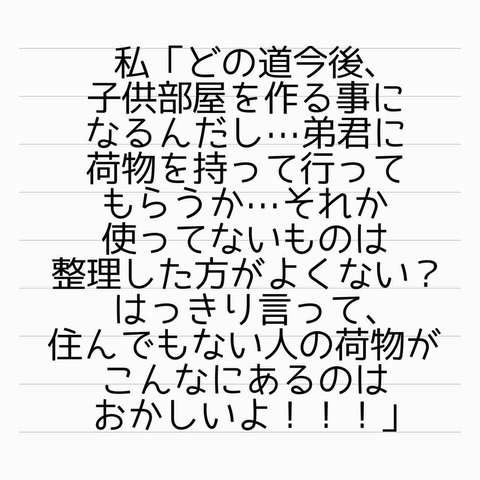 私「どの道今後、
子供部屋を作る事に
なるんだし…弟君に
荷物を持って行って
もらうか…それか
使ってないものは
整理した方がよくない？
はっきり言って、
住んでもない人の荷物が
こんなにあるのは
おかしいよ！！！」